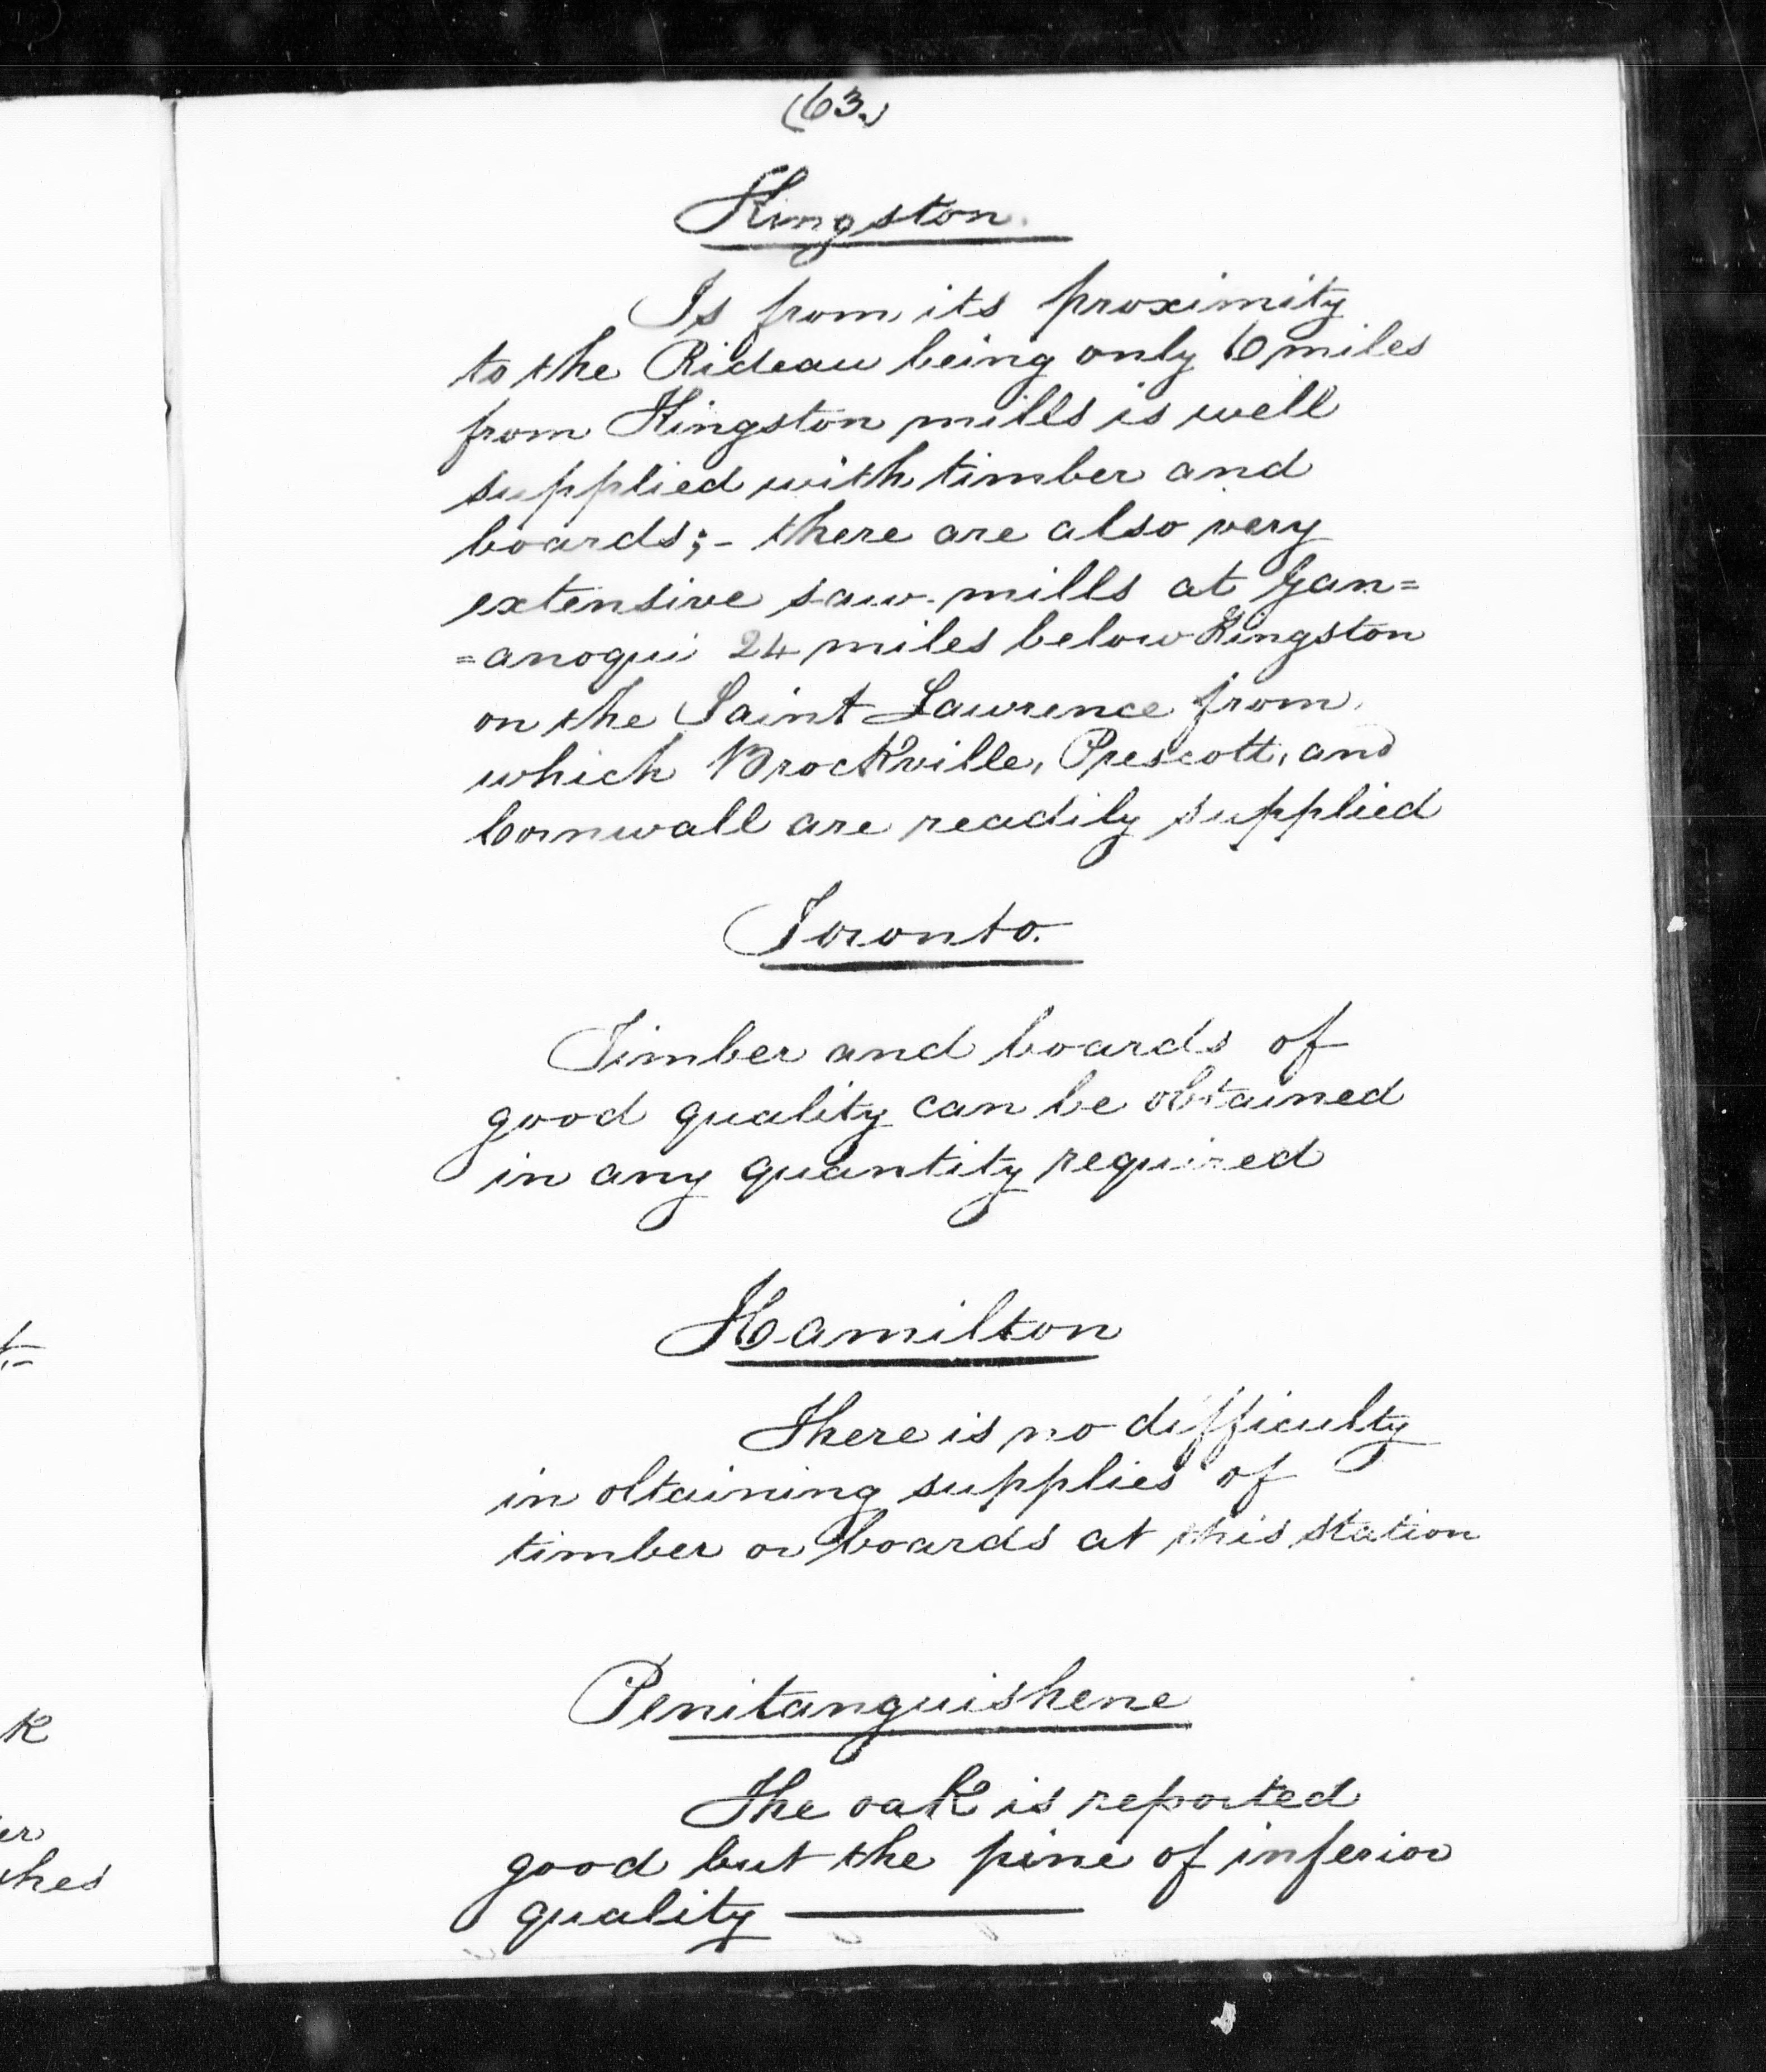 (63.)
Kingston.
Is from its proximity
to the Rideau being only 6 miles
from Kingston mills is well
supplied with timber and
boards;- there are also very
extensive saw-mills at Gan=
=anoqui 24 miles below Kingston
on the Saint Lawrence from
which Brockville, Prescott, and
Cornwall are readily supplied
Toronto.
Timber and boards of
good quality can be obtained
in any quantity required
Hamilton
There is no difficulty
in obtaining supplies of
timber or boards at this station
Penitanguishene
The oak is reported
good but the pine of inferior
quality